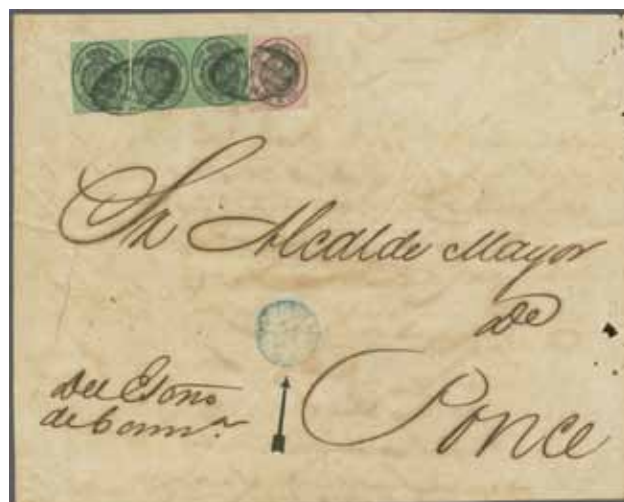 Sr Alcalde Mayor
de
Ponce
Del Esono
de Comn.